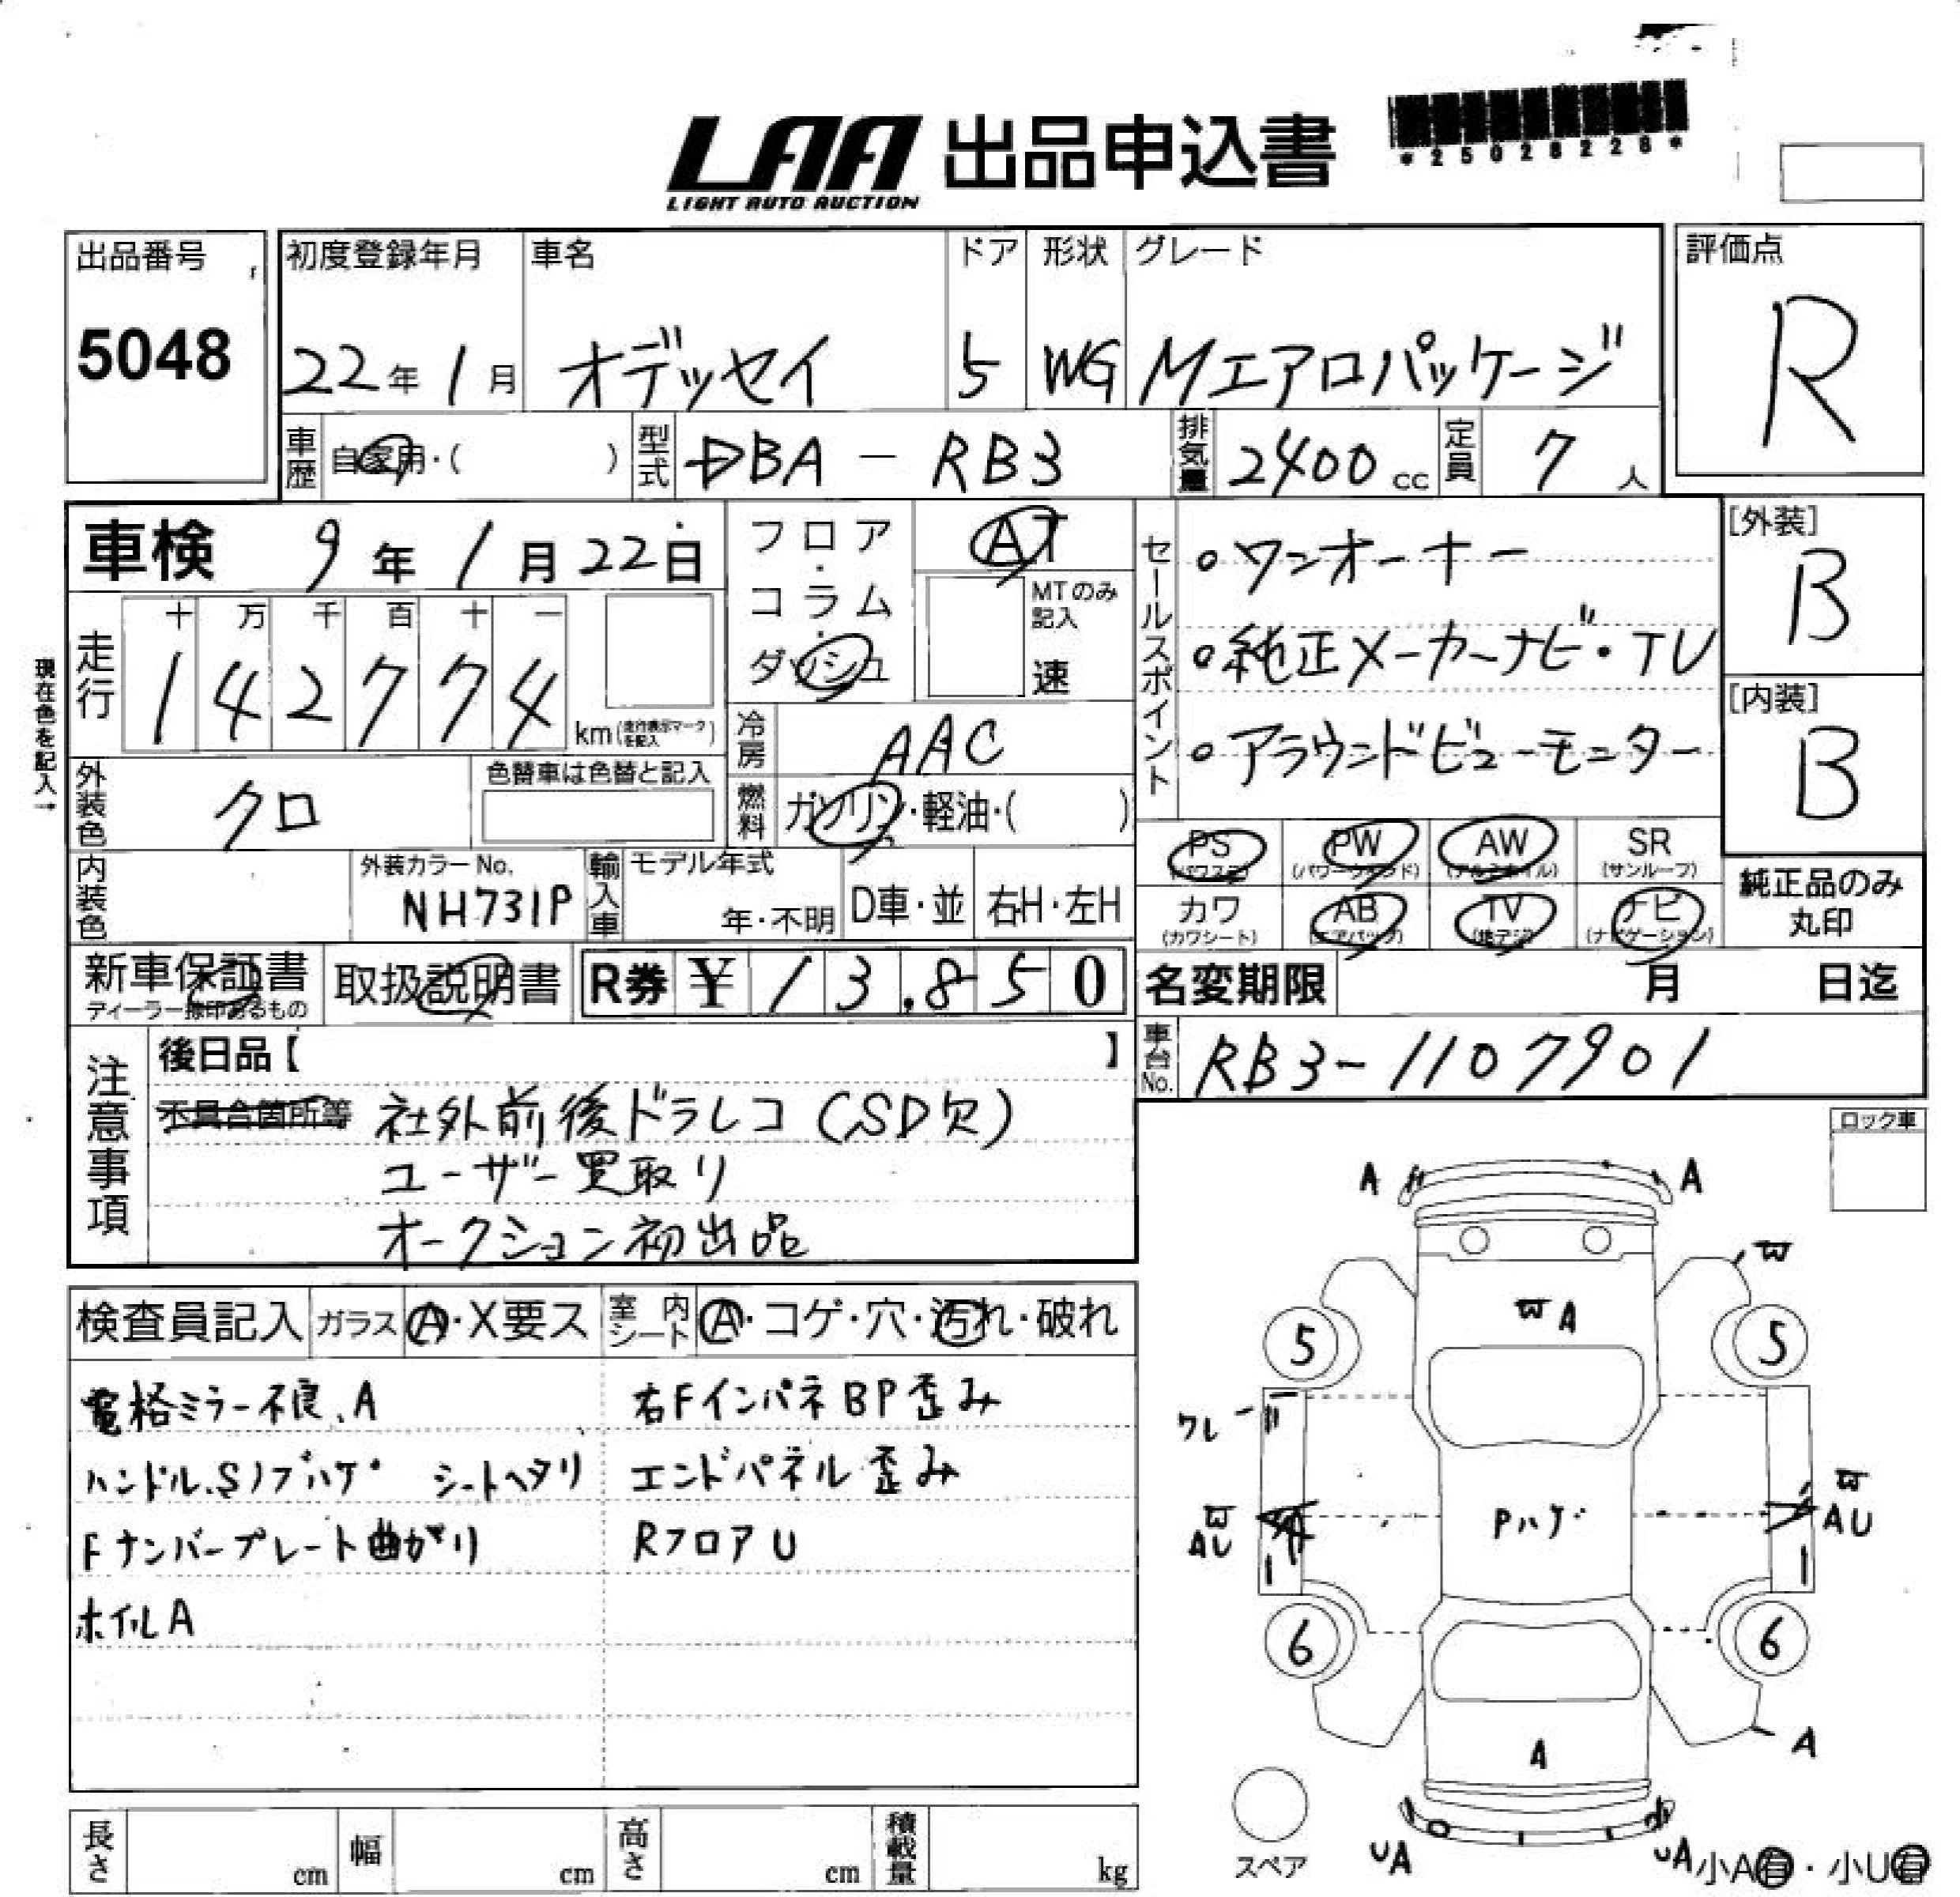 LAA 出品申込書
LIGHT AUTO AUCTION
*25028228*
出品番号
5048
初度登録年月
22年1月
車名
オデッセイ
ドア
5
形状
WG
グレード
Mエアロパッケージ
評価点
R
車歴
自家用・( )
型式
DBA - RB3
排気量
2400cc
定員
7人
車検 9年1月22日
フロア・コラム・ダッシュ
AT
MTのみ記入
速
セールスポイント
○ワンオーナー
○純正メーカーナビ・TV
○アラウンドビューモニター
[外装]
B
[内装]
B
現在色を記入→
走行
十万千百十一
142774
km(走行表示マークを記入)
冷房
AAC
外装色
クロ
色替車は色替と記入
燃料
ガソリン・軽油・( )
PS
(パワステ)
PW
(パワーウインド)
AW
(アルミホイル)
SR
(サンルーフ)
カワ
(カワシート)
AB
(エアバック)
TV
(地デジ)
ナビ
(ナビゲーション)
純正品のみ
丸印
内装色
外装カラーNo.
NH731P
輸入車
モデル年式
年・不明
D車・並
右H・左H
新車保証書
ディーラー捺印あるもの
取扱説明書
R券 ¥13,850
名変期限 月 日迄
車台No.
RB3-1107901
注意事項
後日品【 】
不具合箇所等 社外前後ドラレコ(SD欠)
ユーザー買取り
オークション初出品
ロック車
検査員記入
ガラス
A・X要ス
室内シート
A・コゲ・穴・汚れ・破れ
電格ミラー不良、A
ハンドル、Sノブハゲ シートヘタリ
Fナンバープレート曲がり
ホイルA
右FインパネBP歪み
エンドパネル歪み
RフロアU
A
A
W
W A
5
5
ワレ
W
AU
Pハゲ
W
AU
6
6
A
A
スペア
UA
UA
小A有・小U有
長さ
cm
幅
cm
高さ
cm
積載量
kg